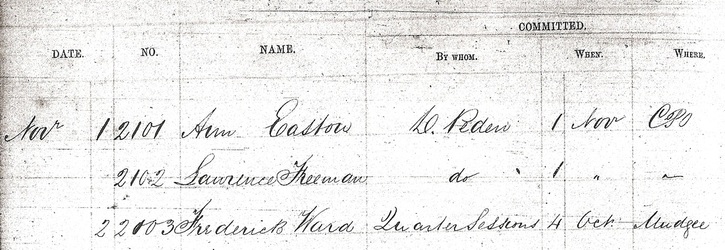 COMMITTED.
DATE. NO. NAME. BY WHOM. WHEN. WHERE.
Novr 1 2101 Ann Easton D. Peden 1 Nov CPO
2102 Lawrence Freeman do " 1 "
2 2103 Frederick Ward Quarter Sessions 4 Oct. Mudgee